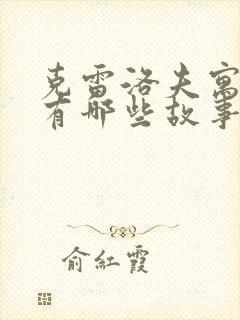 克雷洛夫寓
有哪些故事
俞红霞